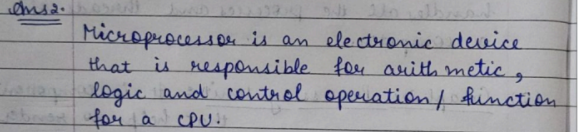 Ans 2.
Microprocessor is an electronic device
that is responsible for arith metic,
logic and control operation/ function
for a CPU.